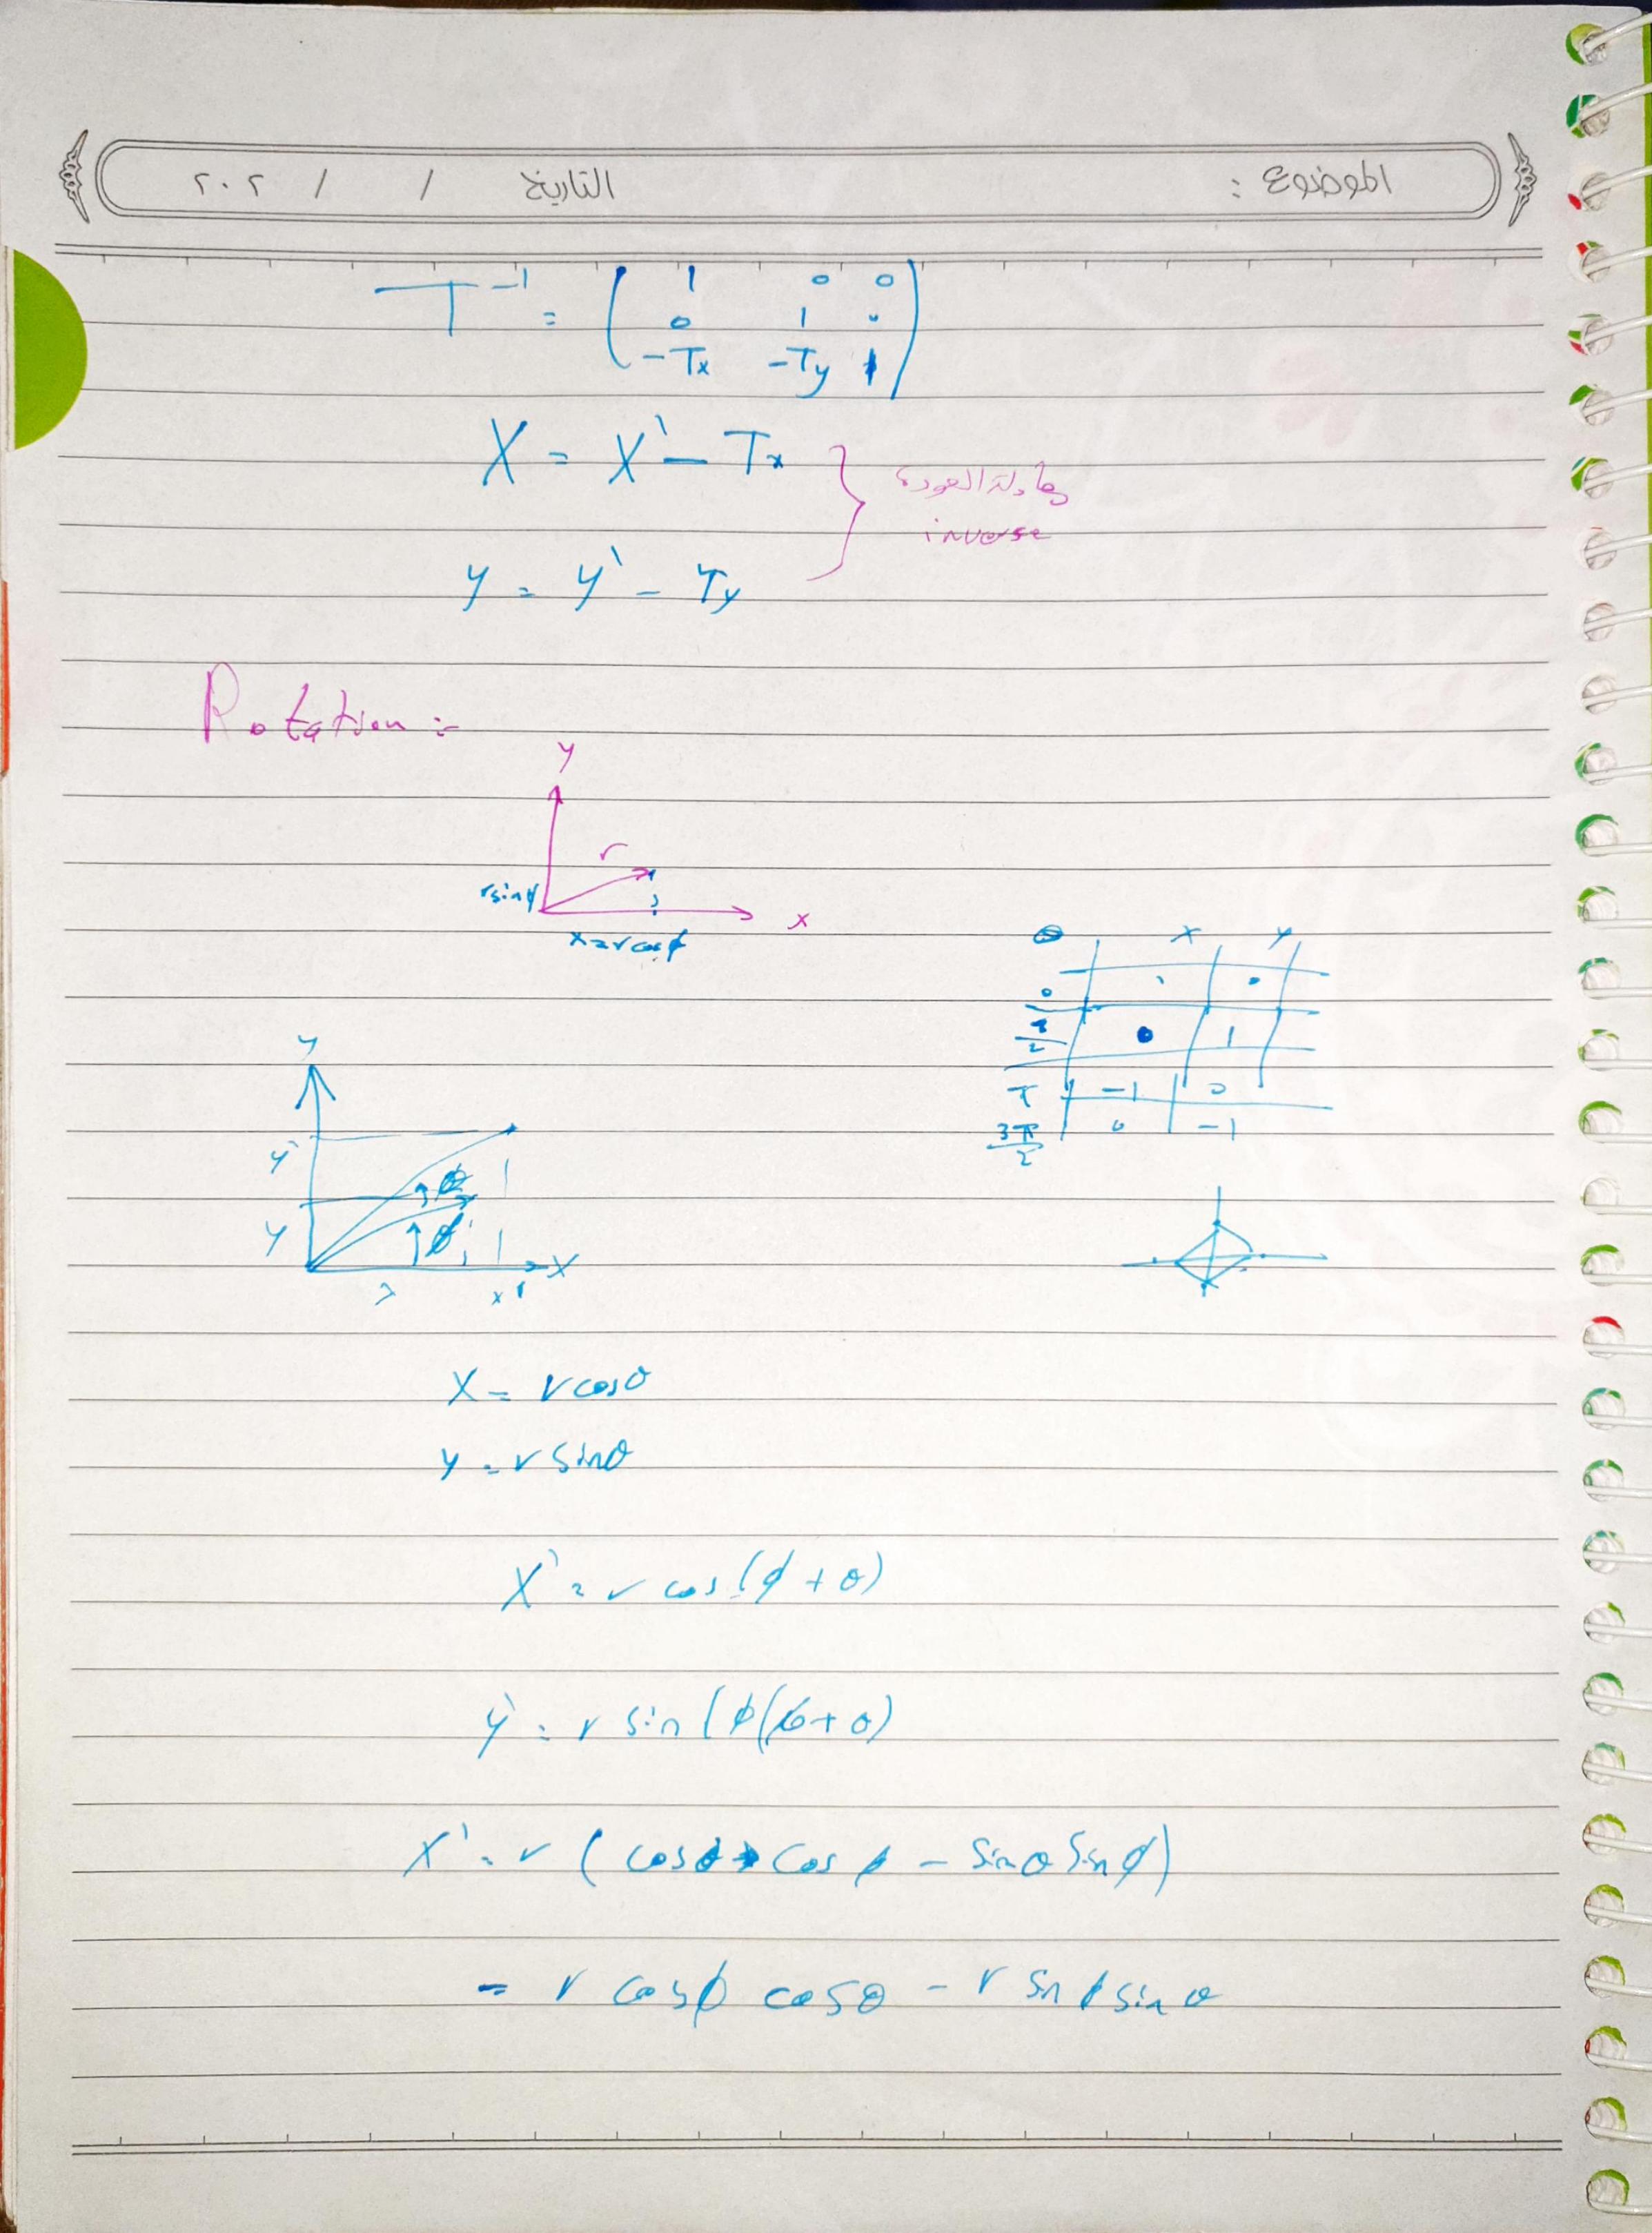 الموضوع : التاريخ / / ٢٠٢
T⁻¹ = ( 1 0 0
0 1 0
-Tx -Ty 1 )
X = X` - Tx
معادلة العودة
inverse
y = y` - Ty
Rotation :-
y
r
r sin ϕ
x
x = r cos ϕ
θ x y
0 1 0
π/2 0 1
π -1 0
3π/2 0 -1
y
y`
θ
y
ϕ
x
x'
X = r cos θ
y = r sin θ
X` = r cos (ϕ + θ)
y` = r sin (ϕ + θ)
X` = r ( cos θ cos ϕ - sin θ sin ϕ)
= r cos ϕ cos θ - r sin ϕ sin θ